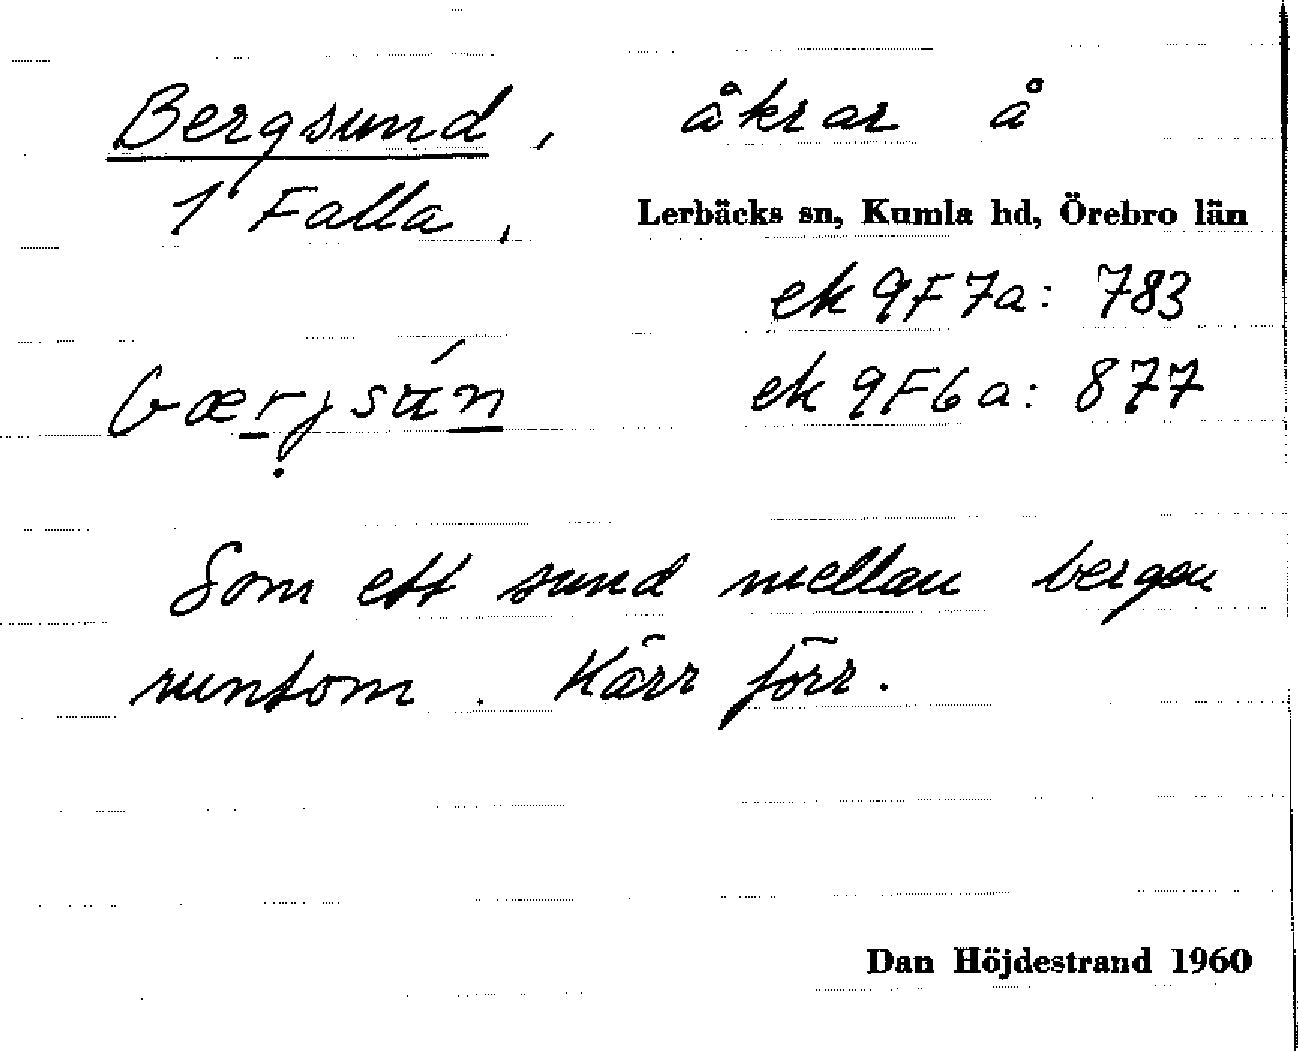 Bergsund, åkrar å
1 Falla, Lerbäcks sn, Kumla hd, Örebro län
ek 9F7a: 783
bærjsún ek 9F6a: 877
Som ett sund mellan bergen
runtom. Kärr förr.
Dan Höjdestrand 1960